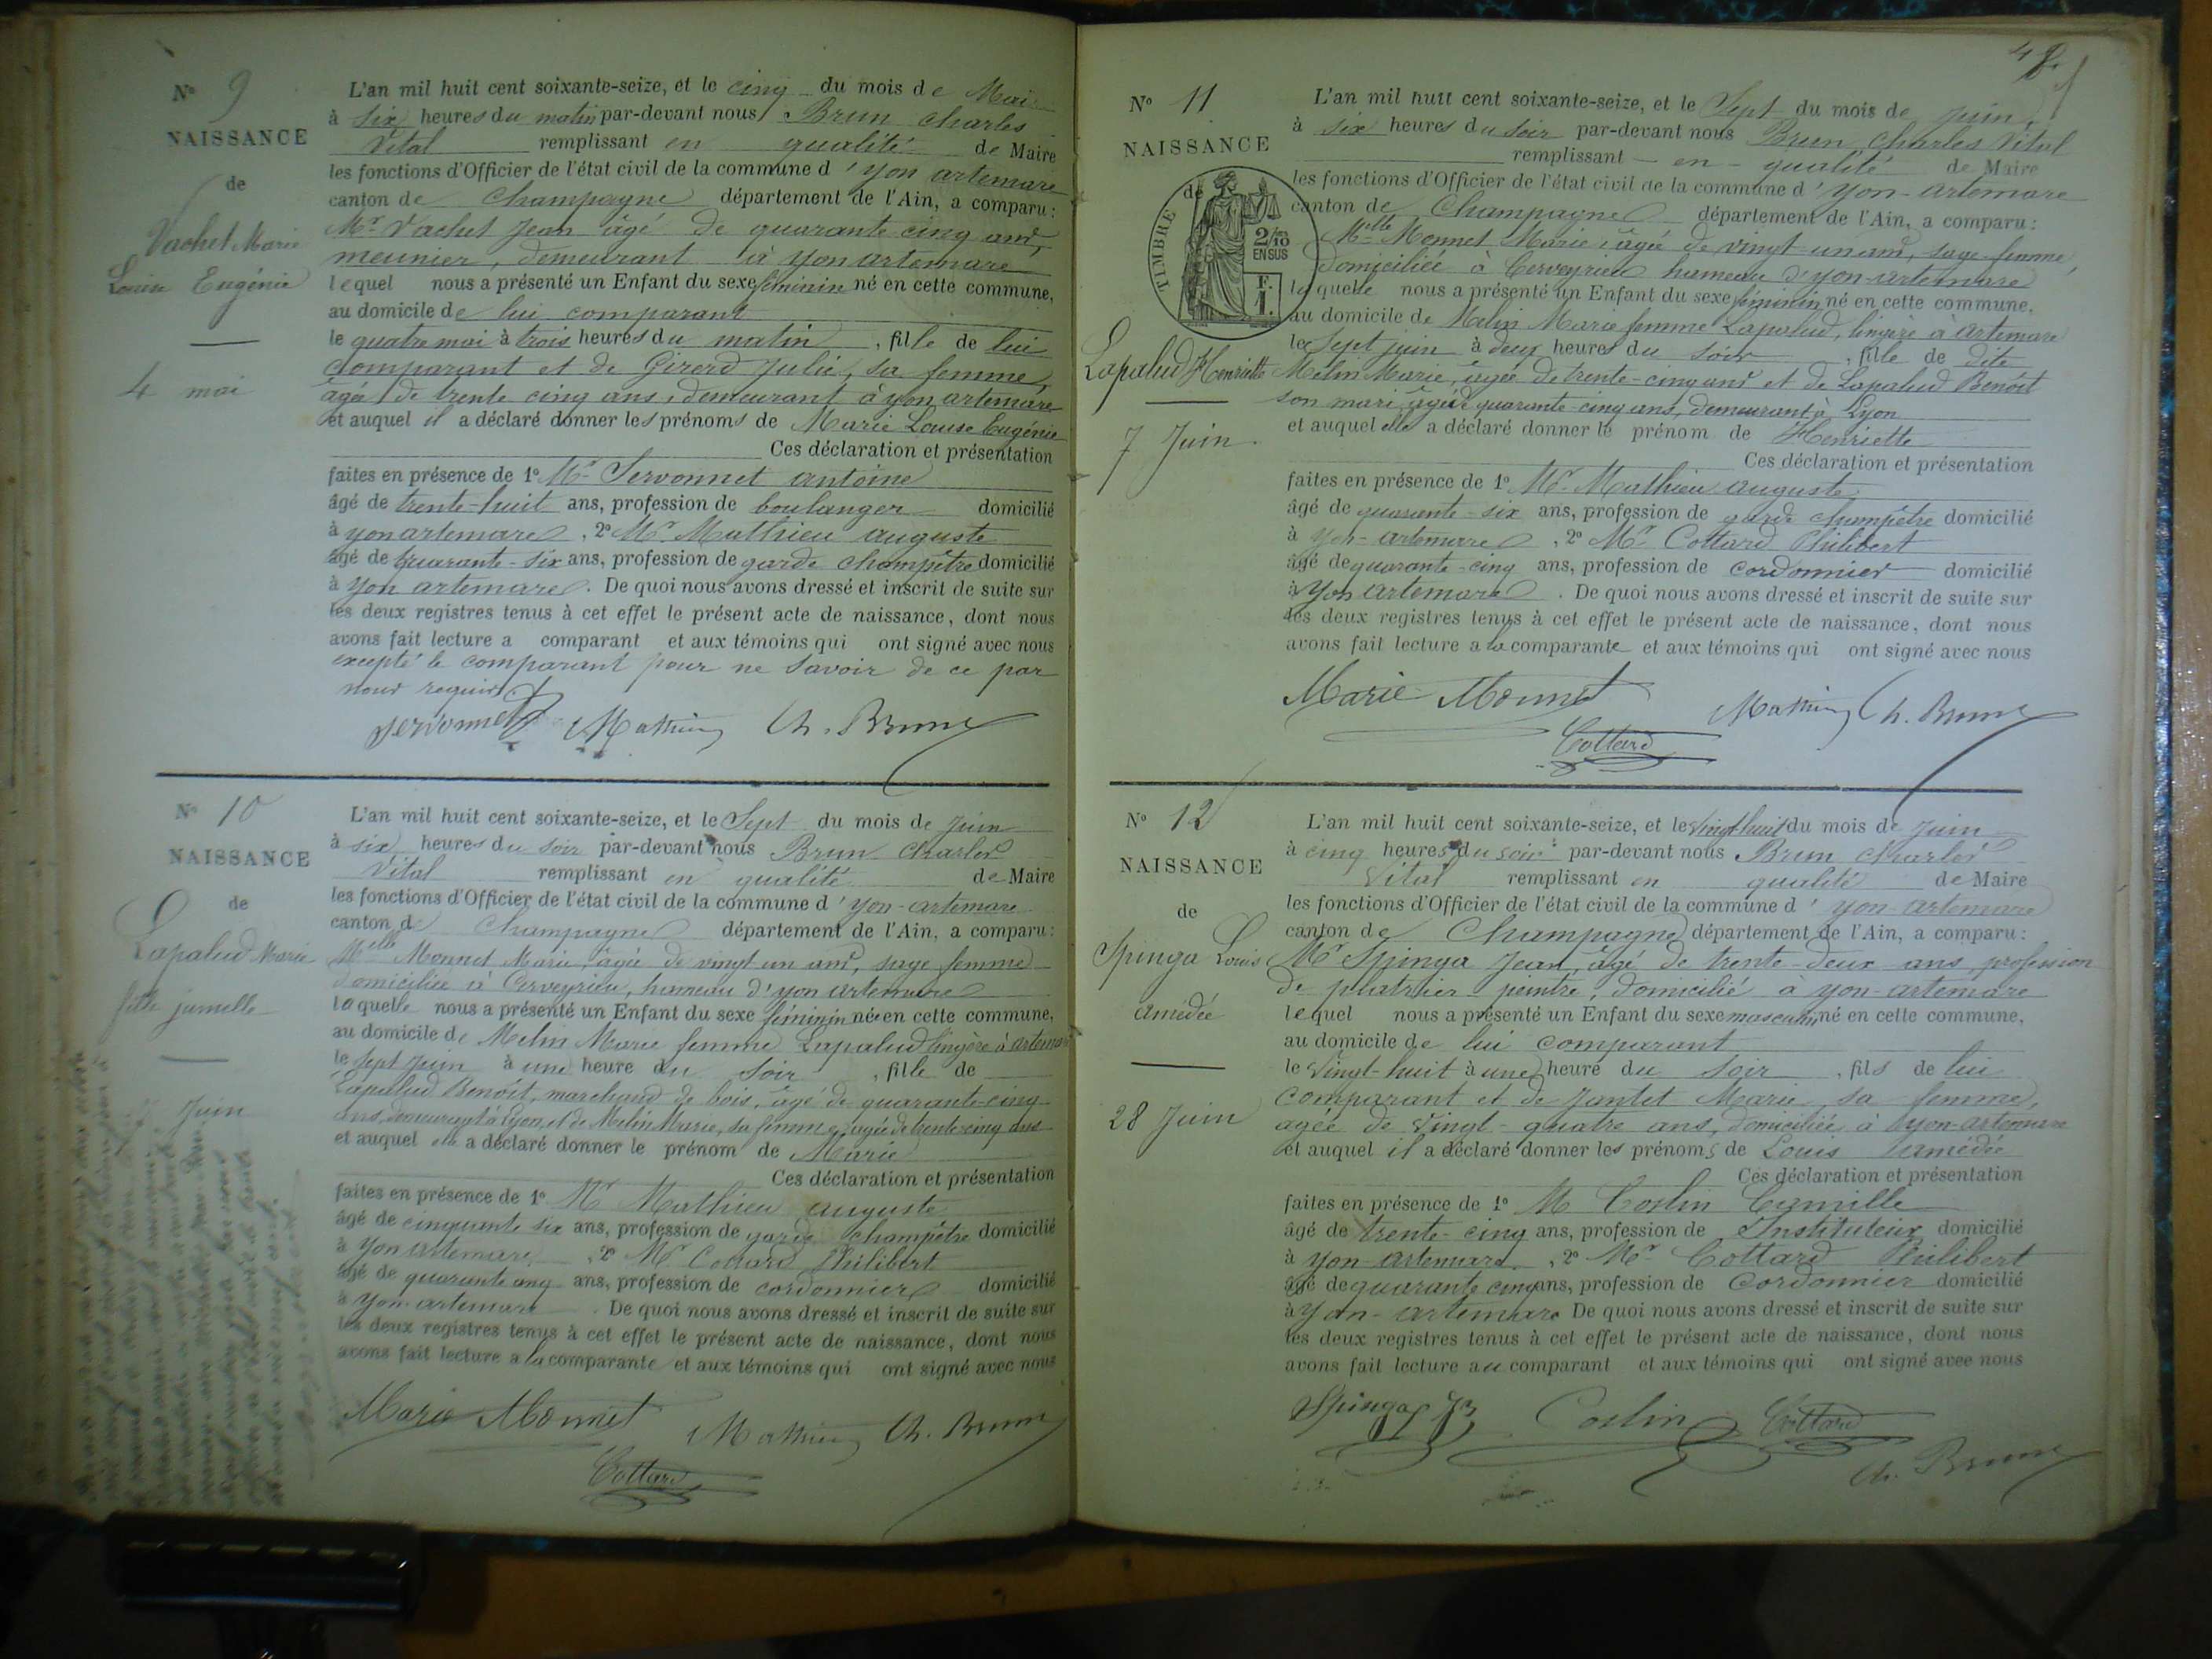 N° 9
NAISSANCE
de
Vachet Marie
Louise Eugénie
4 mai
L'an mil huit cent soixante-seize, et le cinq du mois de Mai
à six heures du matin par-devant nous Brun Charles
Vital remplissant en qualité de Maire
les fonctions d'Officier de l'état civil de la commune d'yon artemare
canton de Champagne département de l'Ain, a comparu:
Mr Vachet Jean âgé de quarante cinq ans,
meunier, demeurant à yon artemare
lequel nous a présenté un Enfant du sexe féminin né en cette commune,
au domicile de lui comparant
le quatre mai à trois heures du matin, fille de lui
comparant et de Girerd Julie, sa femme,
âgée de trente cinq ans, demeurant à yon artemare
et auquel il a déclaré donner les prénoms de Marie Louise Eugénie
Ces déclaration et présentation
faites en présence de 1° Mr Servonnet antoine
âgé de trente-huit ans, profession de boulanger domicilié
à yon artemare, 2° Mr Mathieu auguste
âgé de quarante-six ans, profession de garde champêtre domicilié
à yon artemare. De quoi nous avons dressé et inscrit de suite sur
les deux registres tenus à cet effet le présent acte de naissance, dont nous
avons fait lecture a comparant et aux témoins qui ont signé avec nous
excepté le comparant pour ne savoir de ce par
nous requis
Servonnet Mathieu Ch. Brun
N° 10
NAISSANCE
de
Lapalud Marie
fille jumelle
7 Juin
L'an mil huit cent soixante-seize, et le Sept du mois de Juin
à six heures du soir par-devant nous Brun Charles
Vital remplissant en qualité de Maire
les fonctions d'Officier de l'état civil de la commune d'yon-artemare
canton de Champagne département de l'Ain, a comparu:
Melle Monnet Marie, âgée de vingt un ans, sage femme
domiciliée à Cerveyrieu, hameau d'yon artemare
laquelle nous a présenté un Enfant du sexe féminin née en cette commune,
au domicile de Melin Marie femme Lapalud lingère à artemare
le sept juin à une heure du soir, fille de
Lapalud Benoît, marchand de bois, âgé de quarante-cinq
ans, demeurant à Lyon, et de Melin Marie, sa femme, âgée de trente-cinq ans
et auquel elle a déclaré donner le prénom de Marie
Ces déclaration et présentation
faites en présence de 1° Mr Mathieu auguste
âgé de cinquante six ans, profession de garde champêtre domicilié
à yon artemare, 2° Mr Cottard Philibert
âgé de quarante cinq ans, profession de cordonnier domicilié
à yon-artemare. De quoi nous avons dressé et inscrit de suite sur
les deux registres tenus à cet effet le présent acte de naissance, dont nous
avons fait lecture a la comparante et aux témoins qui ont signé avec nous
Marie Monnet Mathieu Ch. Brun
Cottard
48.
N° 11
NAISSANCE
de
TIMBRE
2/10
EN SUS
F.
1.
Lapalud Henriette
7 Juin
L'an mil huit cent soixante-seize, et le Sept du mois de juin,
à six heures du soir par-devant nous Brun Charles Vital
remplissant en qualité de Maire
les fonctions d'Officier de l'état civil de la commune d'yon-artemare
canton de Champagne département de l'Ain, a comparu:
Melle Monnet Marie, âgée de vingt-un ans, sage-femme,
domiciliée à Cerveyrieu hameau d'yon-artemare
laquelle nous a présenté un Enfant du sexe féminin né en cette commune,
au domicile de Melin Marie femme Lapalud, lingère à artemare
le sept juin à deux heures du soir, fille de dite
Melin Marie, âgée de trente-cinq ans et de Lapalud Benoît
son mari âgé de quarante-cinq ans, demeurant à Lyon
et auquel elle a déclaré donner le prénom de Henriette
Ces déclaration et présentation
faites en présence de 1° Mr Mathieu auguste
âgé de quarante-six ans, profession de garde champêtre domicilié
à yon-artemare, 2° Mr Cottard Philibert
âgé de quarante-cinq ans, profession de cordonnier domicilié
à yon artemare. De quoi nous avons dressé et inscrit de suite sur
les deux registres tenus à cet effet le présent acte de naissance, dont nous
avons fait lecture a la comparante et aux témoins qui ont signé avec nous
Marie Monnet Mathieu Ch. Brun
Cottard
N° 12
NAISSANCE
de
Spinga Louis
amédée
28 Juin
L'an mil huit cent soixante-seize, et le vingt huit du mois de Juin
à cinq heures du soir par-devant nous Brun Charles
Vital remplissant en qualité de Maire
les fonctions d'Officier de l'état civil de la commune d'yon-artemare
canton de Champagne département de l'Ain, a comparu:
Mr Spinga Jean, âgé de trente-deux ans, profession
de platrier-peintre, domicilié à yon-artemare
lequel nous a présenté un Enfant du sexe masculin né en cette commune,
au domicile de lui comparant
le vingt-huit à une heure du soir, fils de lui
comparant et de Jantet Marie, sa femme,
agée de vingt-quatre ans, domiciliée à yon-artemare
et auquel il a déclaré donner les prénoms de Louis amédée
Ces déclaration et présentation
faites en présence de 1° M Coslin Camille
âgé de trente-cinq ans, profession de Instituteur domicilié
à yon artemare, 2° Mr Cottard Philibert
âgé de quarante cinq ans, profession de Cordonnier domicilié
à yon-artemare De quoi nous avons dressé et inscrit de suite sur
les deux registres tenus à cet effet le présent acte de naissance, dont nous
avons fait lecture au comparant et aux témoins qui ont signé avec nous
Spinga Coslin Cottard
Ch. Brun